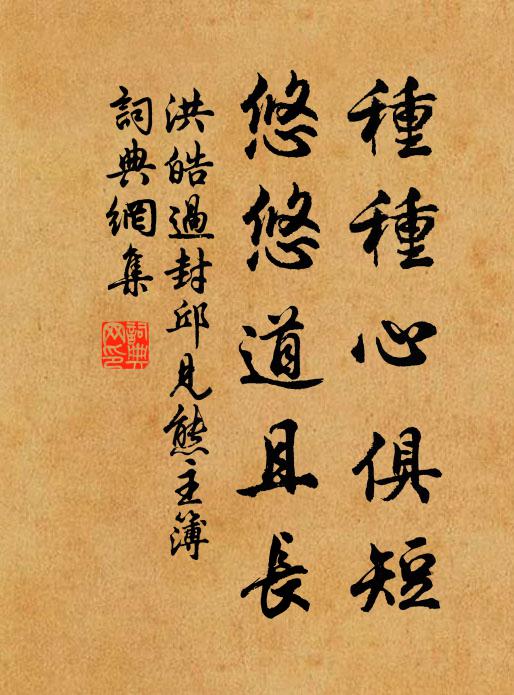 種種心俱短
悠悠道且長
洪皓過封邱見熊主簿
詞典網集
詞典网印